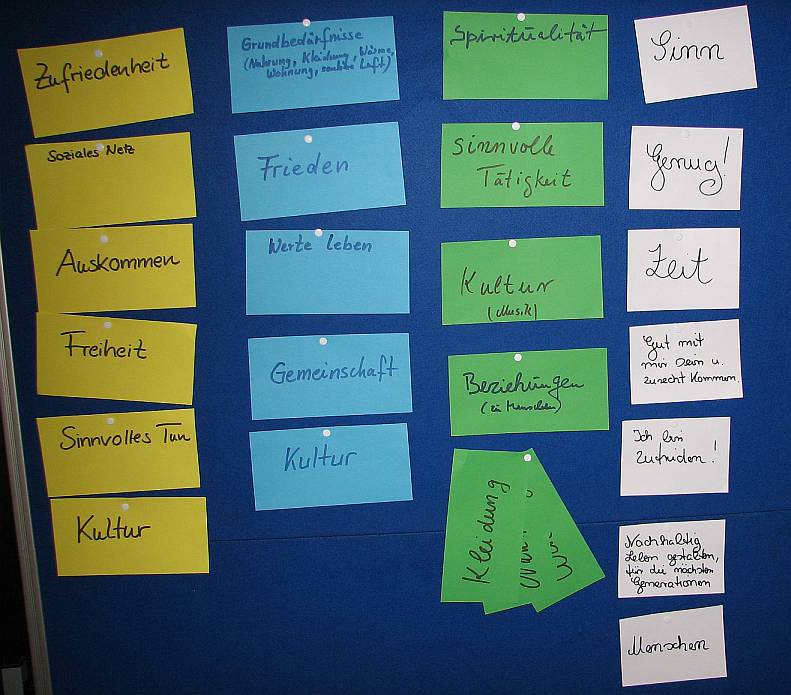 Zufriedenheit
Soziales Netz
Auskommen
Freiheit
Sinnvolles Tun
Kultur
Grundbedürfnisse
(Nahrung, Kleidung, Wärme,
Wohnung, saubere Luft)
Frieden
Werte leben
Gemeinschaft
Kultur
Spiritualität
sinnvolle
Tätigkeit
Kultur
(Musik)
Beziehungen
(zu Menschen)
Kleidung
Sinn
Genug!
Zeit
Gut mit
mir sein u.
zurecht kommen.
Ich bin
zufrieden!
Nachhaltig
Leben gestalten,
für die nächsten
Generationen
Menschen